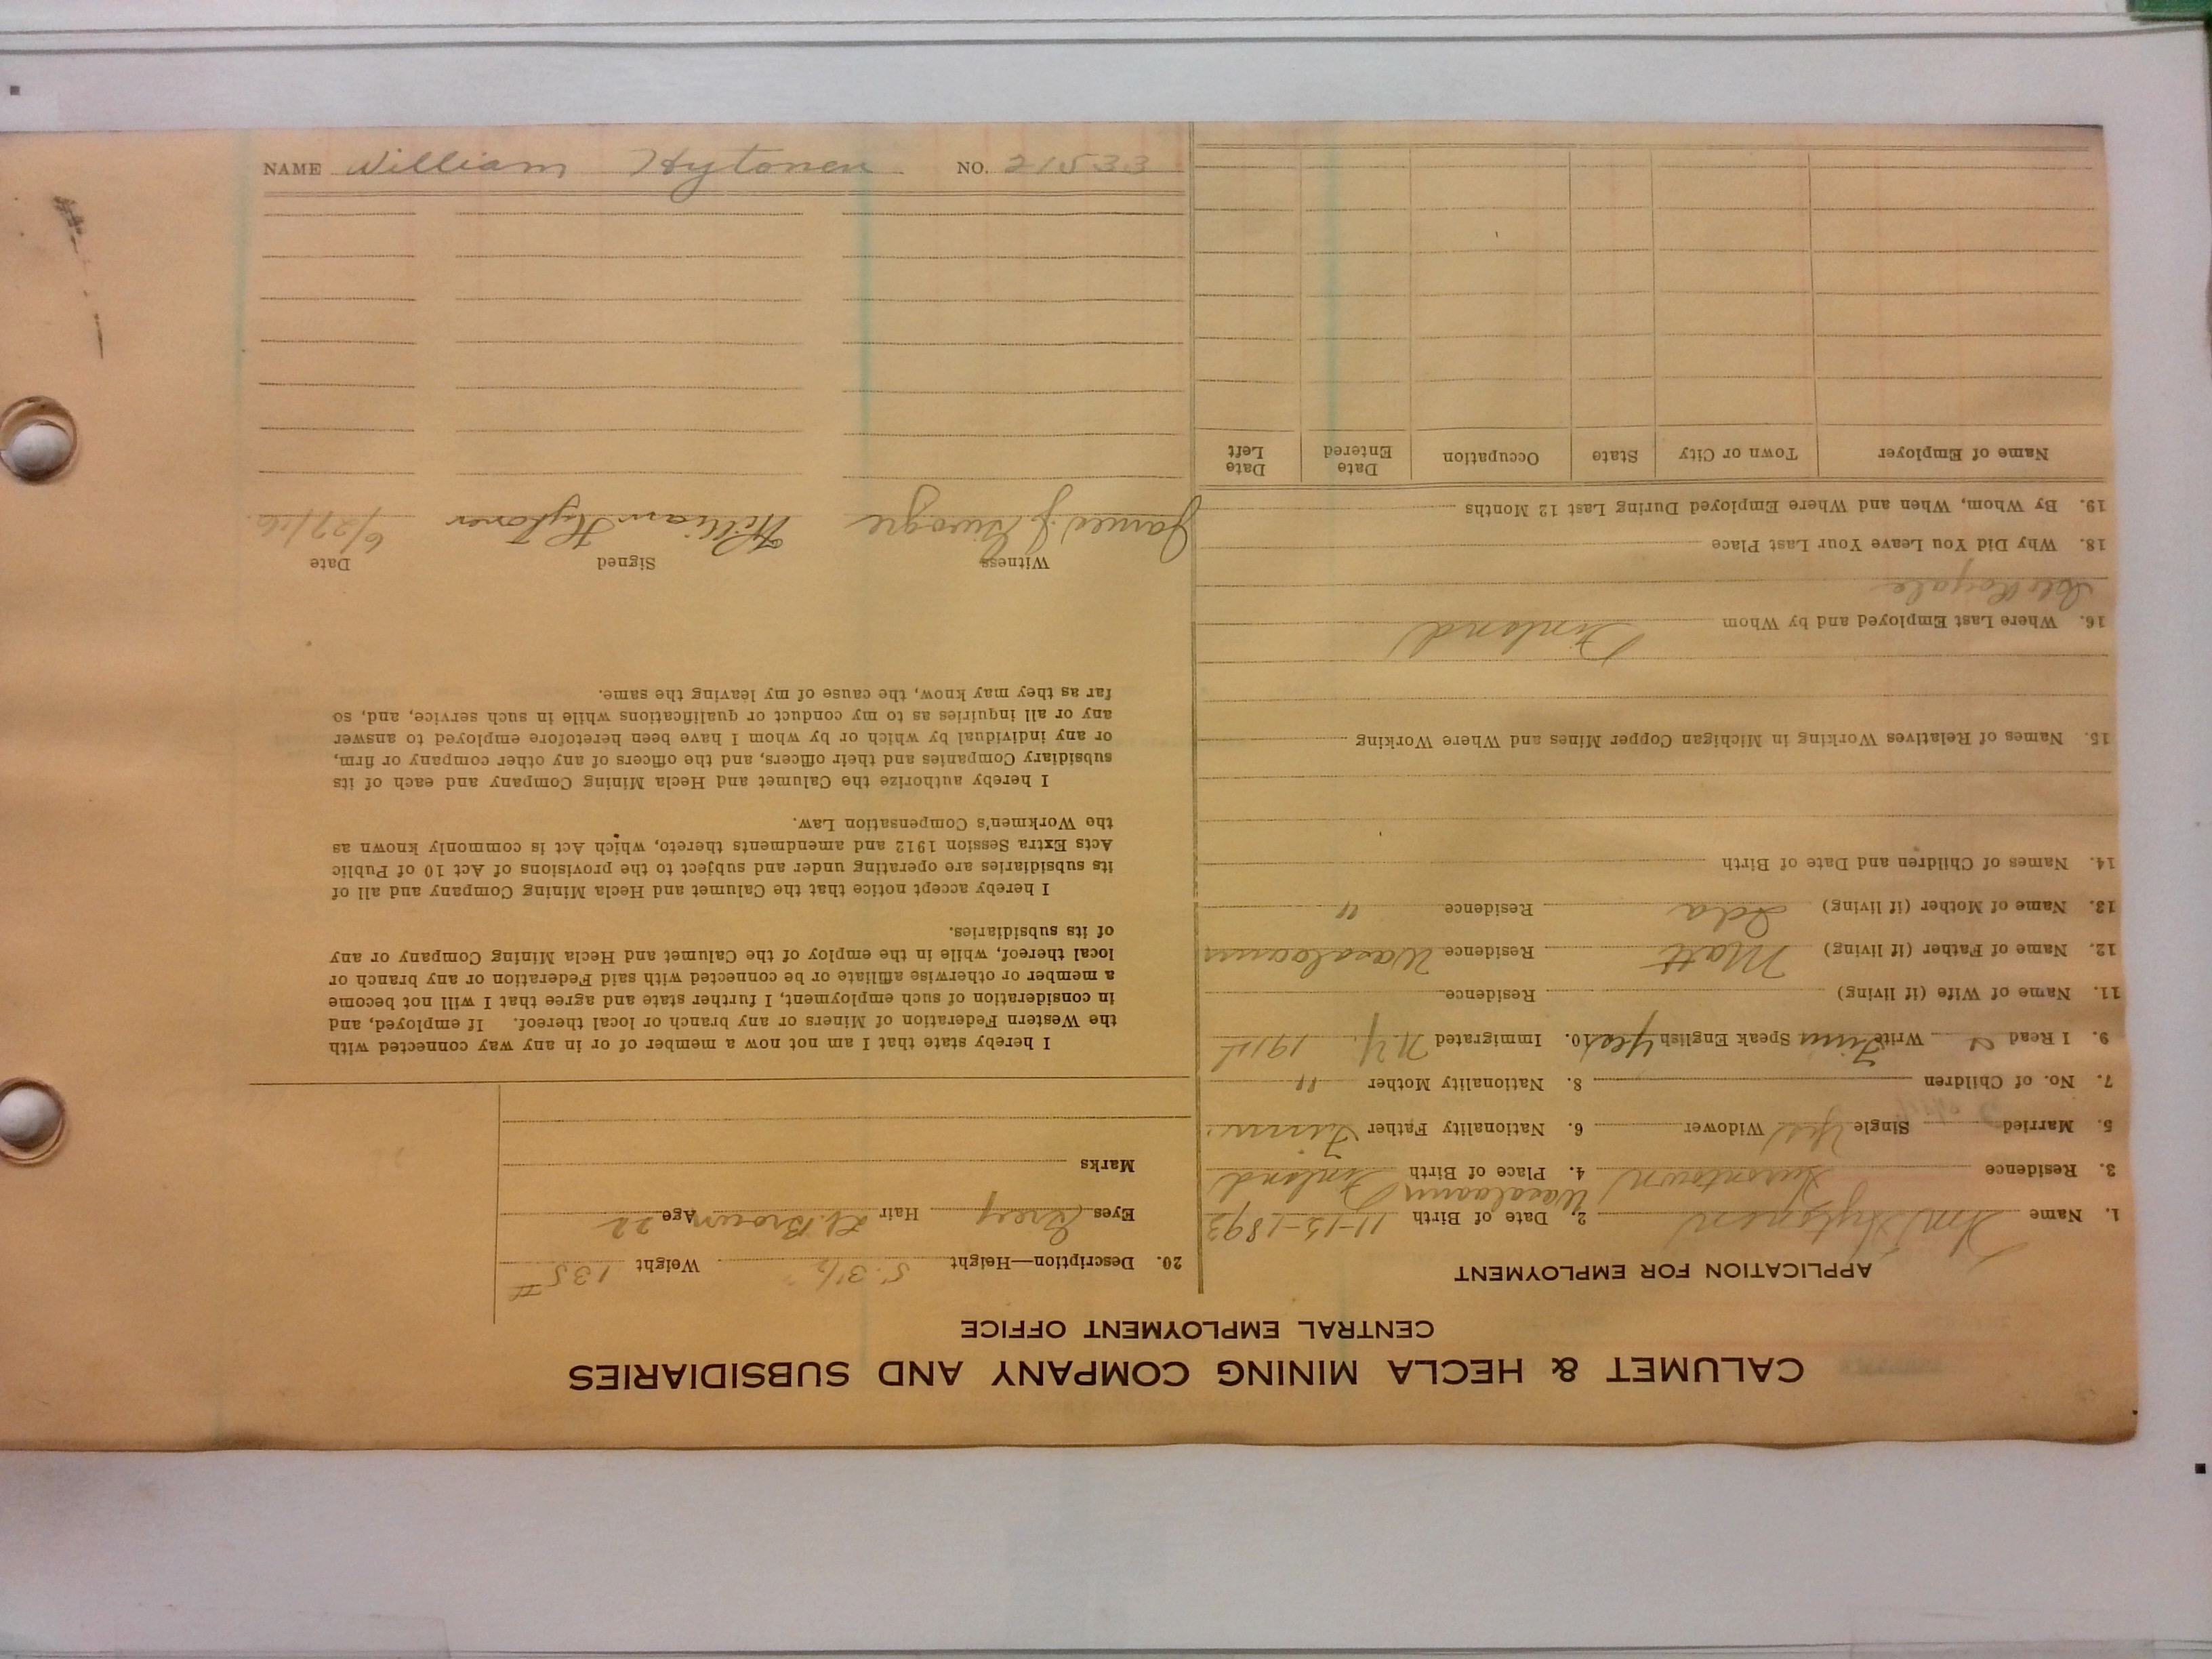 CALUMET & HECLA MINING COMPANY AND SUBSIDIARIES
CENTRAL EMPLOYMENT OFFICE
APPLICATION FOR EMPLOYMENT
1. Name Wm Hytonen 2. Date of Birth 11-15-1893
3. Residence 4. Place of Birth Finland
5. Married Single Yes Widower 6. Nationality Father Finn.
7. No. of Children 8. Nationality Mother "
9. I Read & Write Finn Speak English Yes 10. Immigrated N.Y.
11. Name of Wife (if living) Residence
12. Name of Father (if living) Matt Residence
13. Name of Mother (if living) Ida Residence "
14. Names of Children and Date of Birth
15. Names of Relatives Working in Michigan Copper Mines and Where Working
16. Where Last Employed and by Whom Finland
Isle Royale
18. Why Did You Leave Your Last Place
19. By Whom, When and Where Employed During Last 12 Months
Name of Employer Town or City State Occupation Date Entered Date Left
20. Description—Height 5' 3½" Weight 135#
Eyes Grey Hair Lt. Brown Age 22
Marks
I hereby state that I am not now a member of or in any way connected with
the Western Federation of Miners or any branch or local thereof. If employed, and
in consideration of such employment, I further state and agree that I will not become
a member or otherwise affiliate or be connected with said Federation or any branch or
local thereof, while in the employ of the Calumet and Hecla Mining Company or any
of its subsidiaries.
I hereby accept notice that the Calumet and Hecla Mining Company and all of
its subsidiaries are operating under and subject to the provisions of Act 10 of Public
Acts Extra Session 1912 and amendments thereto, which Act is commonly known as
the Workmen's Compensation Law.
I hereby authorize the Calumet and Hecla Mining Company and each of its
subsidiary Companies and their officers, and the officers of any other company or firm,
or any individual by which or by whom I have been heretofore employed to answer
any or all inquiries as to my conduct or qualifications while in such service, and, so
far as they may know, the cause of my leaving the same.
Witness Signed Date
James J. William Hytonen 6/27/16
NAME William Hytonen NO. 21533